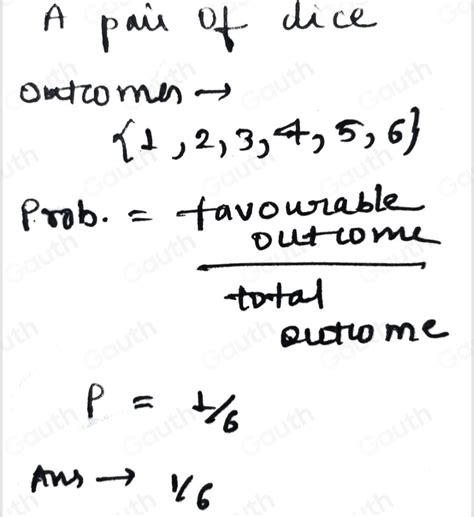 A pair of dice
outcomes →
{1, 2, 3, 4, 5, 6}
Prob. = favourable
outcome
total
outcome
P = 1/6
Ans → 1/6